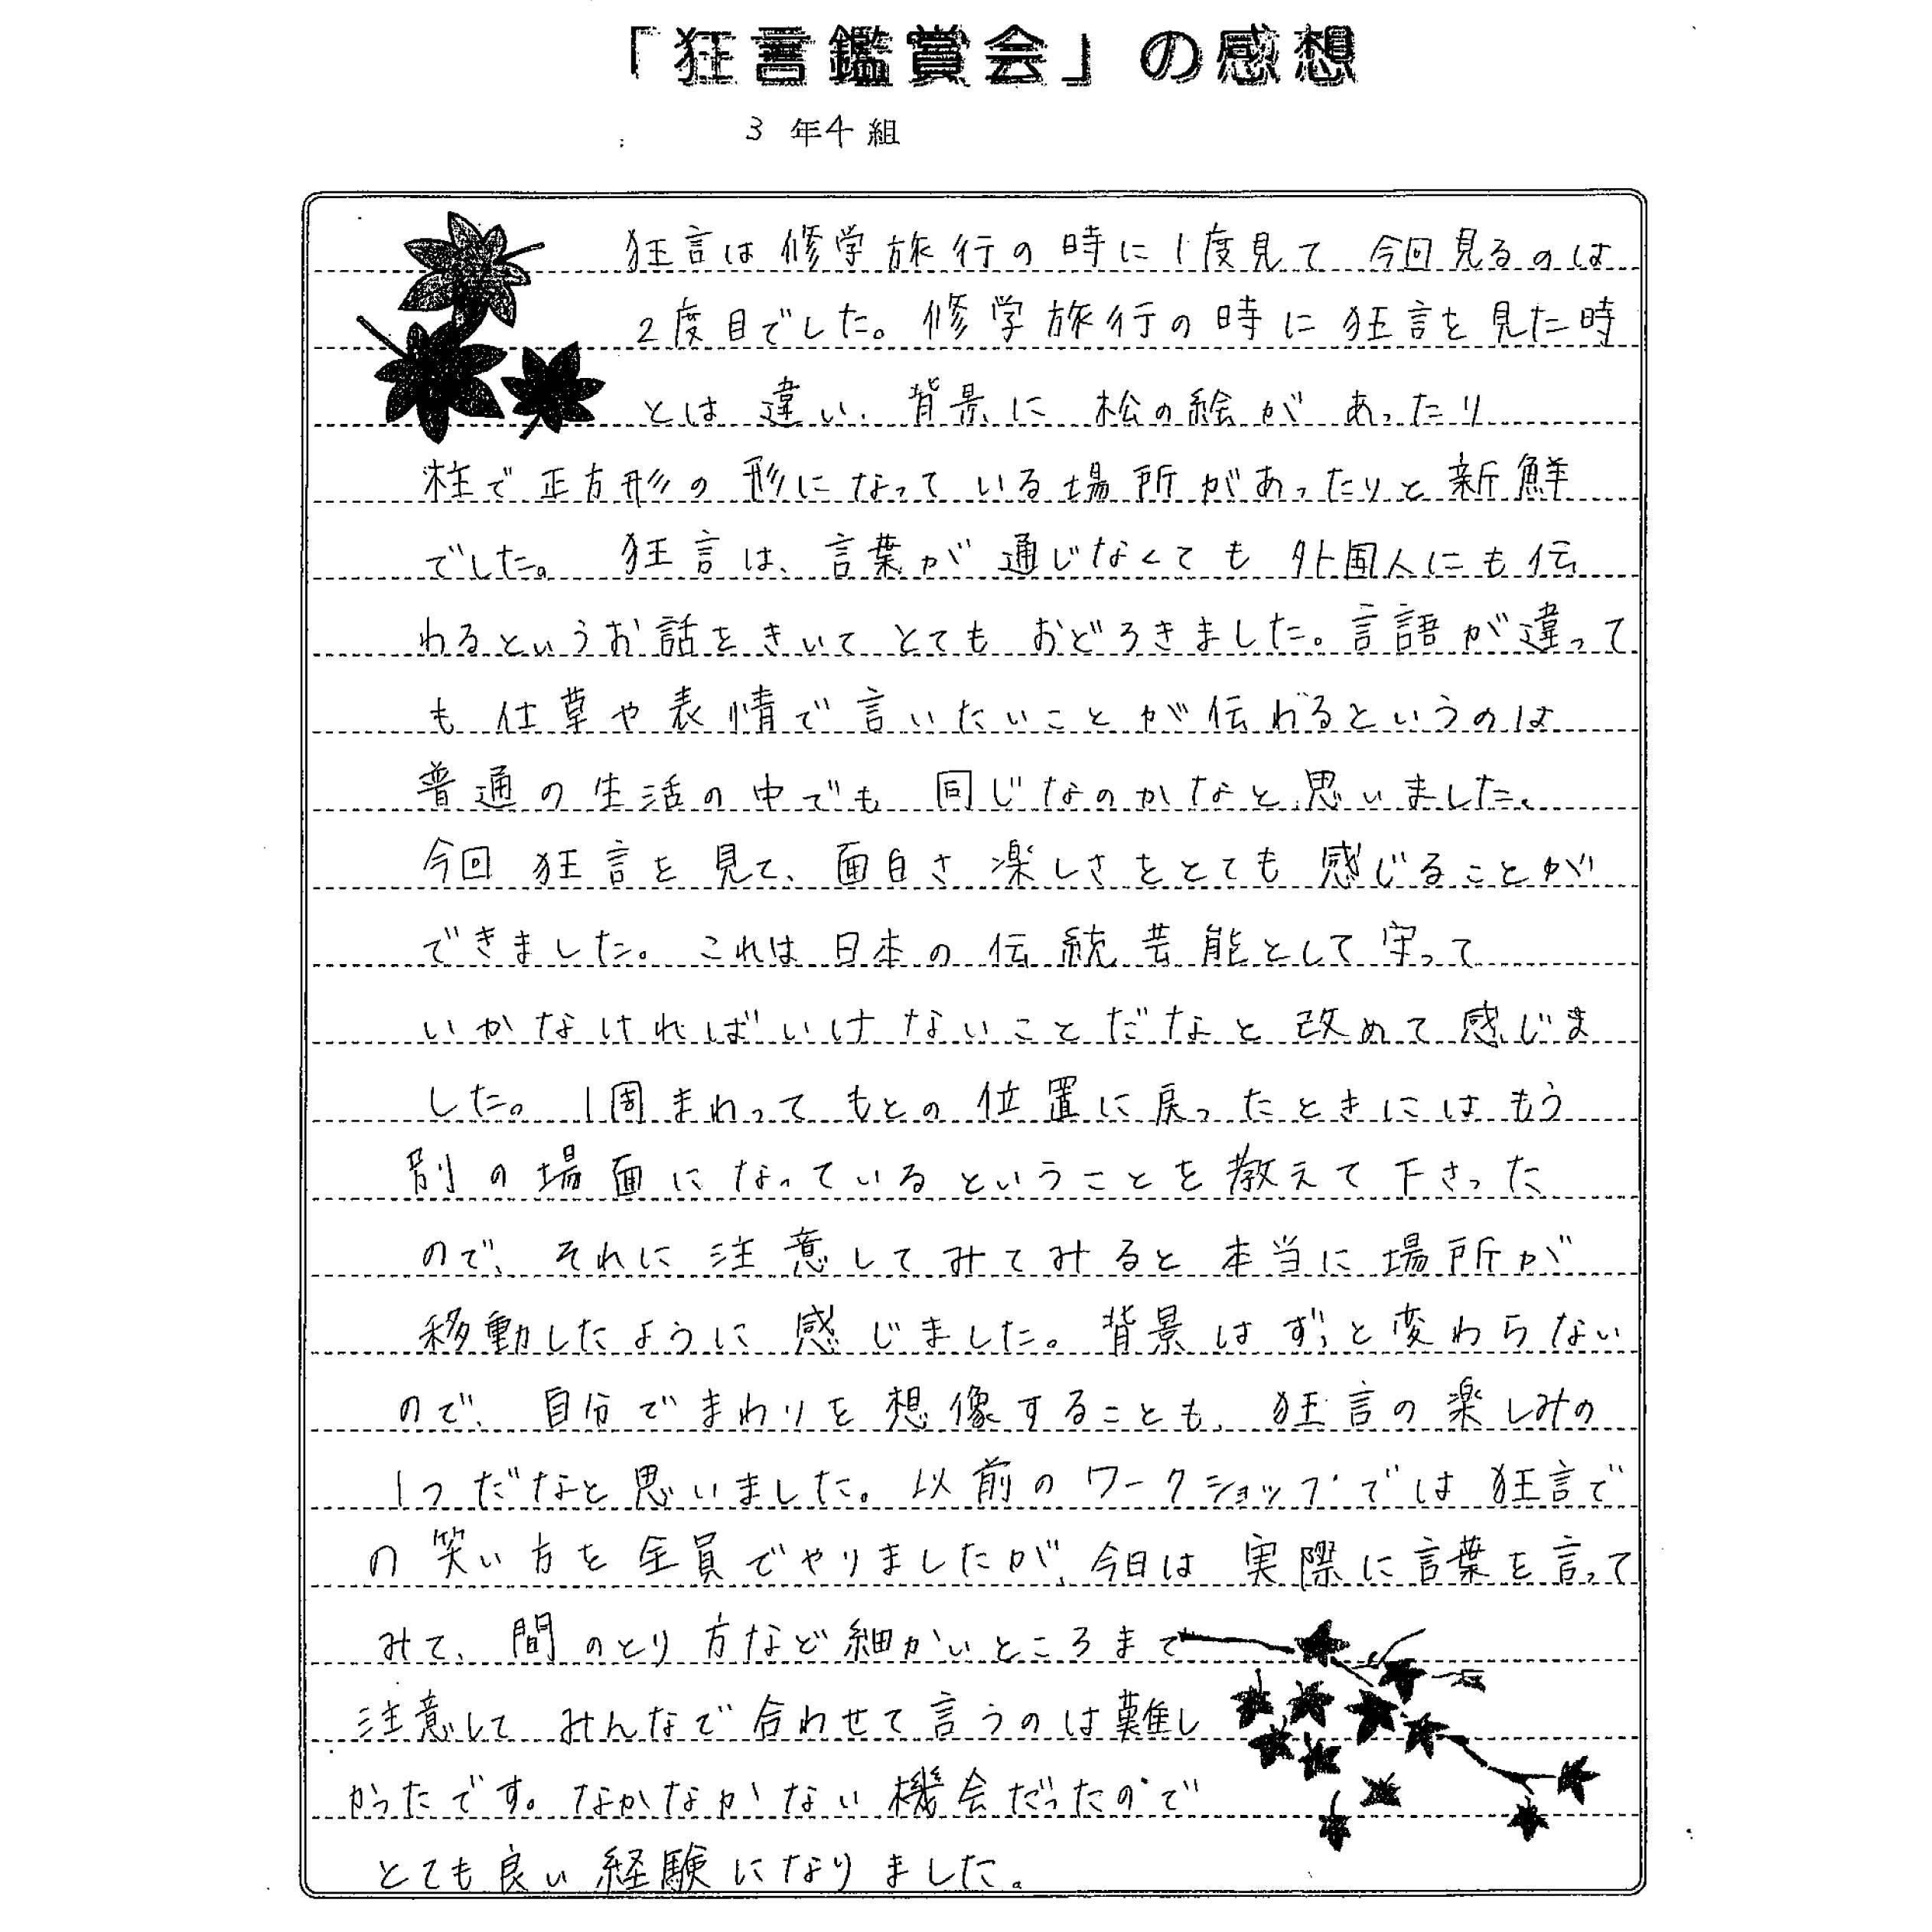 「狂言鑑賞会」の感想
3年4組
狂言は修学旅行の時に1度見て今回見るのは
2度目でした。修学旅行の時に狂言を見た時
とは違い、背景に松の絵があったり
柱で正方形の形になっている場所があったりと新鮮
でした。狂言は、言葉が通じなくても外国人にも伝
わるというお話をきいてとてもおどろきました。言語が違って
も仕草や表情で言いたいことが伝わるというのは
普通の生活の中でも同じなのかなと思いました。
今回狂言を見て、面白さ楽しさをとても感じることが
できました。これは日本の伝統芸能として守って
いかなければいけないことだなと改めて感じま
した。1周まわってもとの位置に戻ったときにはもう
別の場面になっているということを教えて下さった
ので、それに注意してみてみると本当に場所が
移動したように感じました。背景はずっと変わらない
ので、自分でまわりを想像することも、狂言の楽しみの
1つだなと思いました。以前のワークショップでは狂言で
の笑い方を全員でやりましたが、今日は実際に言葉を言って
みて、間のとり方など細かいところまで
注意してみんなで合わせて言うのは難し
かったです。なかなかない機会だったので
とても良い経験になりました。